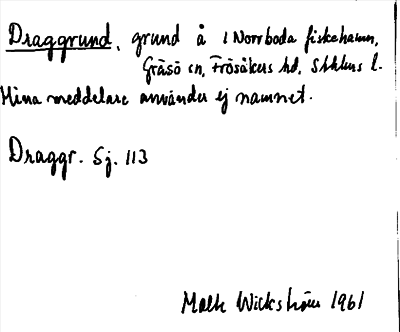 Draggrund, grund å i Norrboda fiskehamn,
Gräsö sn, Frösåkers hd, Sthlms l.
Mina meddelare använder ej namnet.
Draggr. Sj. 113
Wickström 1961